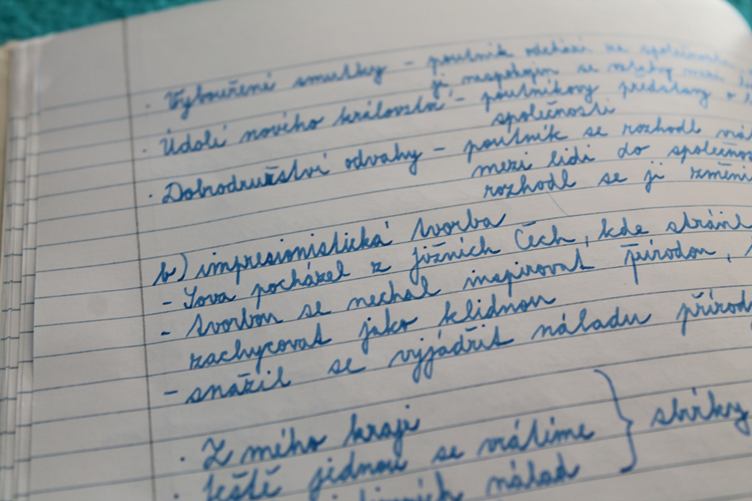 · Vybouřené smutky – poutník odchází ze společnosti
ji nespokojen se vztahy mezi
· Údolí nového království – poutníkovy představy o
společnosti
· Dobrodružství odvahy – poutník se rozhodl
mezi lidi do společnos
rozhodl se ji změni
b) impresionistická tvorba
- Sova pocházel z jižních Čech, kde strávil
- tvorbou se nechal inspirovat přírodou,
zachycovat jako klidnou
- snažil se vyjádřit náladu přírod
· Z mého kraje
· Ještě jednou se vrátíme } sbírky
nálad